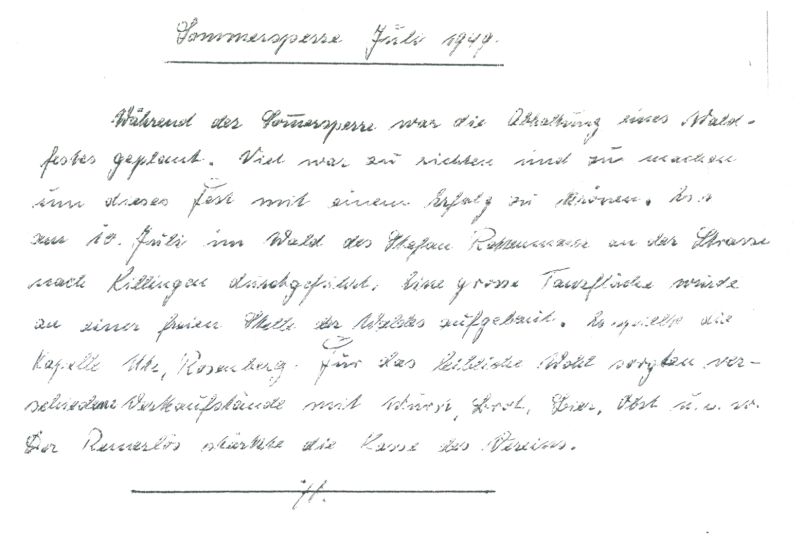 Sommersperre Juli 1949.
Während der Som̄ersperre war die Abhaltung eines Wald-
festes geplant. Viel war zu richten und zu machen
um dieses Fest mit einem Erfolg zu krönen. Es
am 10. Juli im Wald des Stefan Rettenmaier an der Strasse
nach Killingen durchgeführt. Eine grosse Tanzfläche wurde
an einer freien Stelle des Waldes aufgebaut. Es spielte die
Kapelle Uhl, Rosenberg. Für das leibliche Wohl sorgten ver-
schiedene Verkaufstände mit Wurst, Brot, Bier, Obst u.s.w.
Der Reinerlös stärkte die Kasse des Vereins.